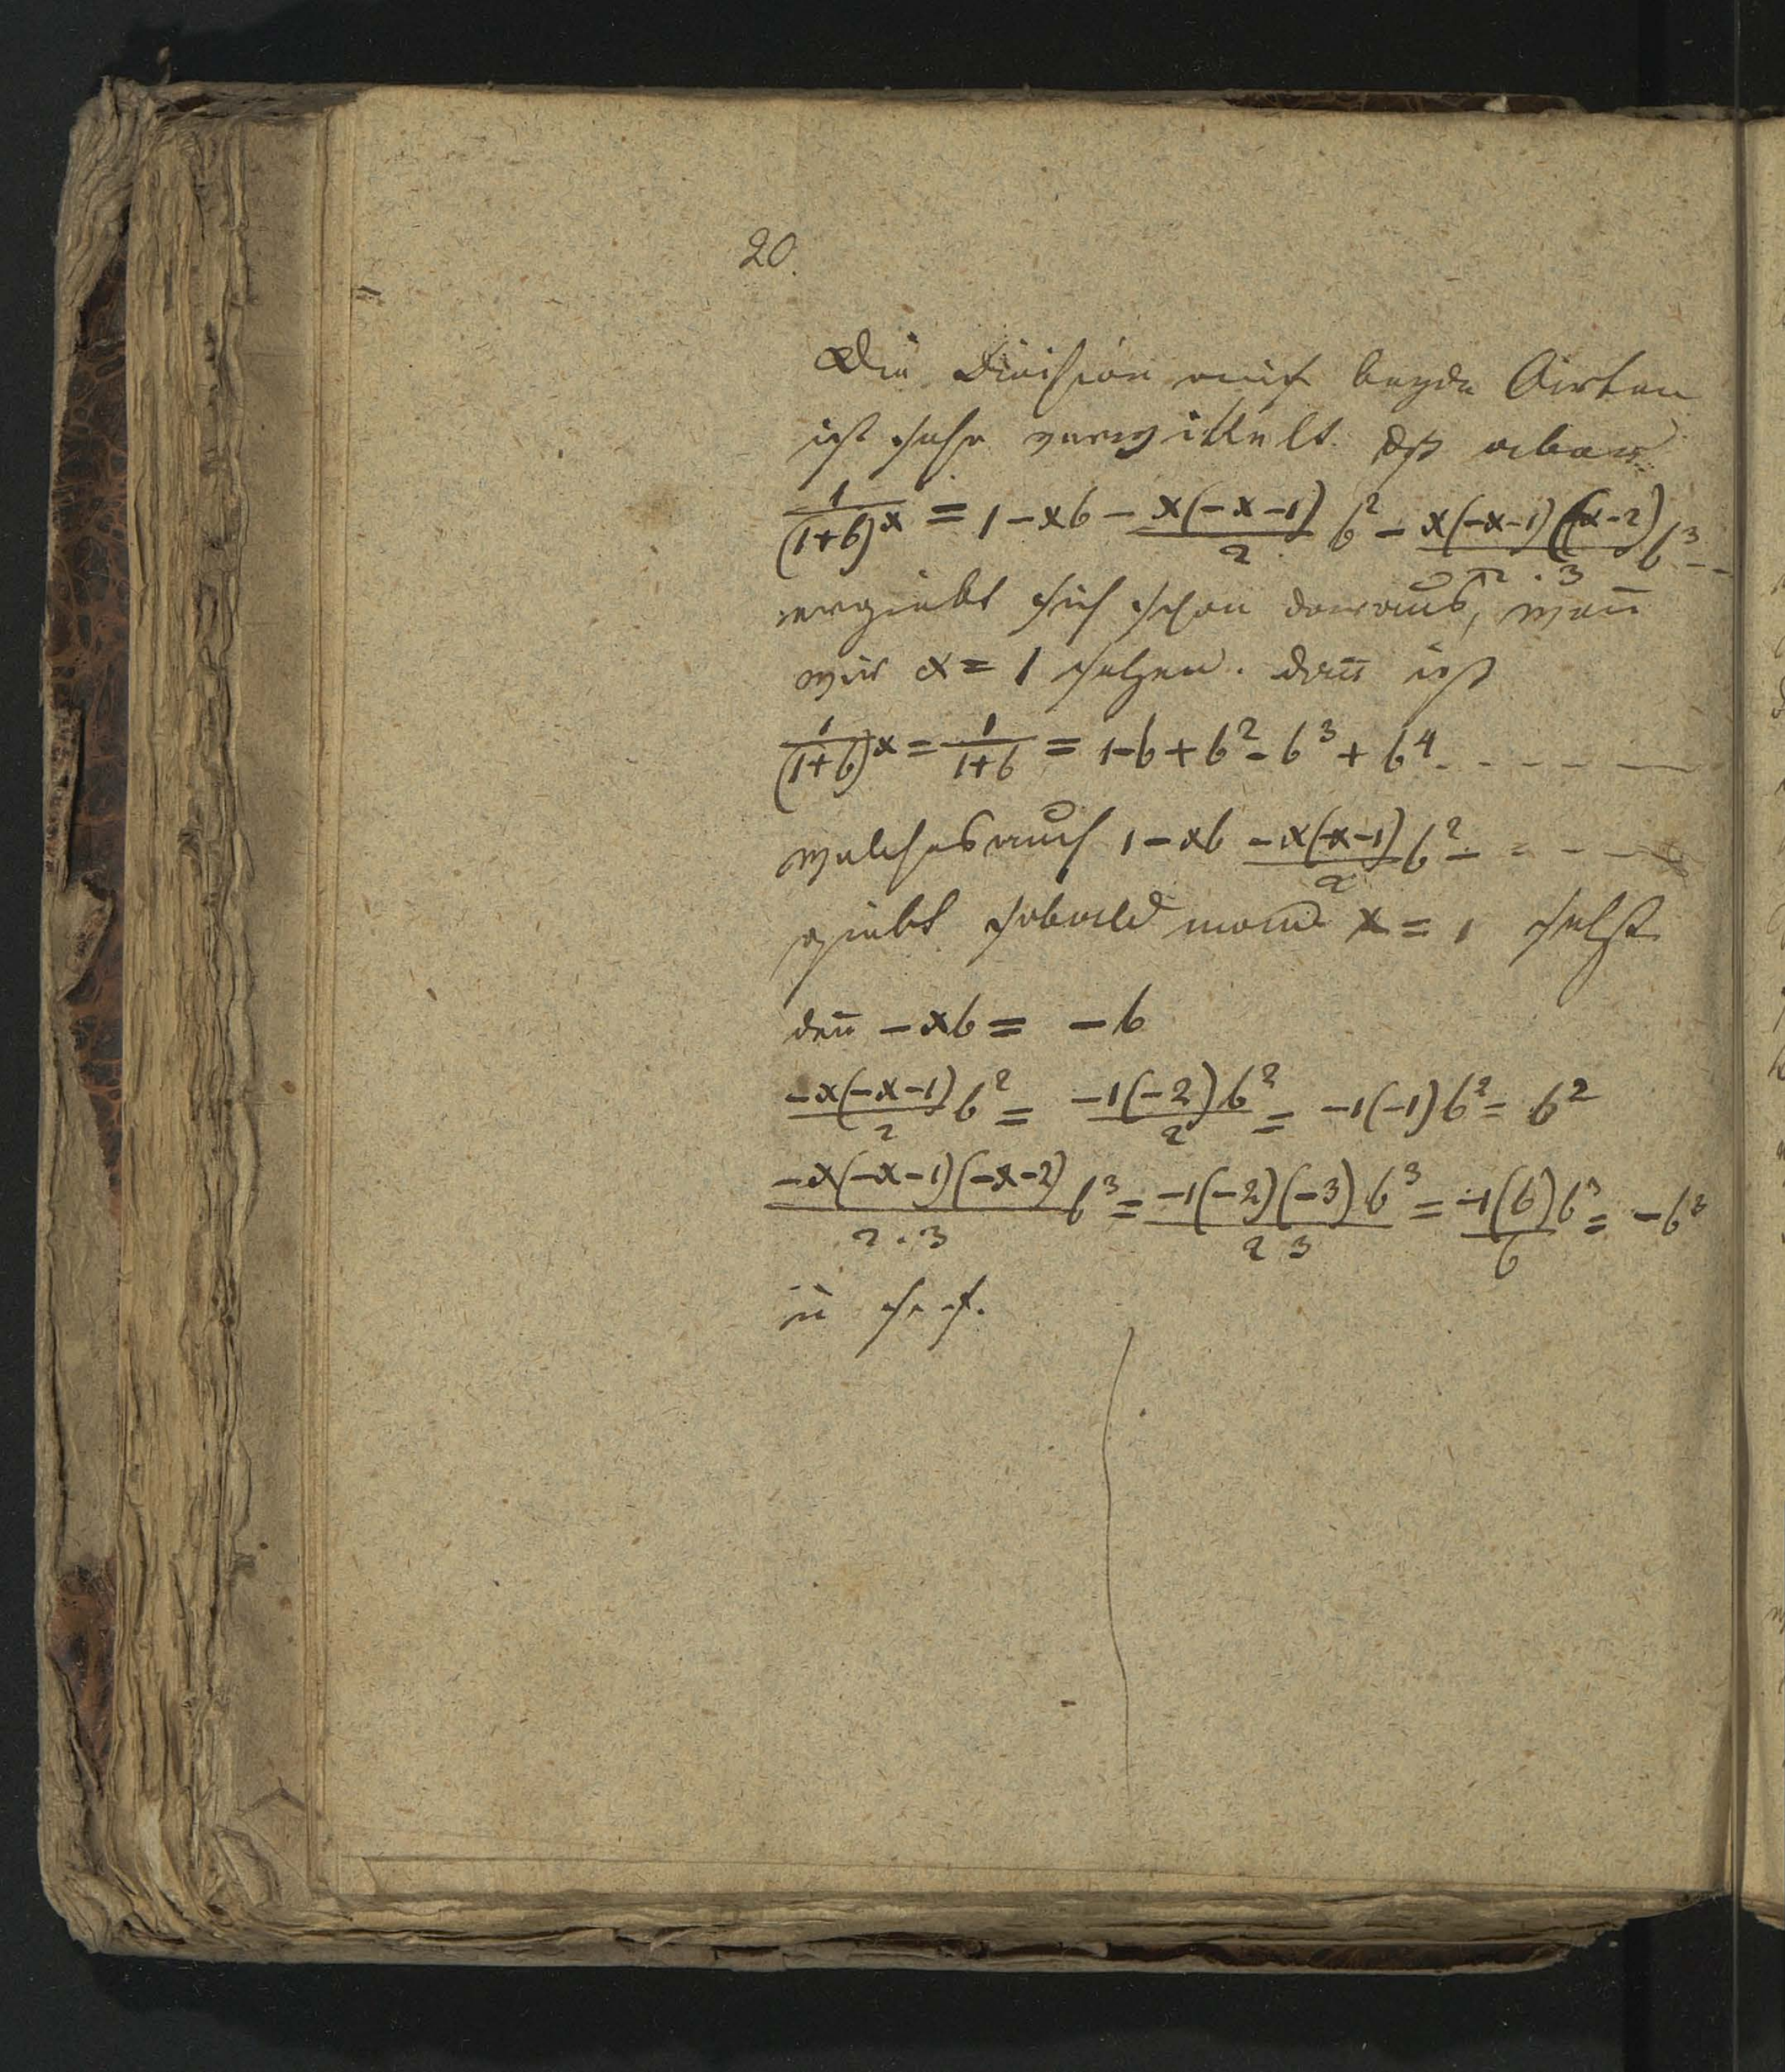 20.
Die Division auf beyde Arten
ist sehr verwikkelt. dß aber
1/(1+b)^x = 1 - xb - x(-x-1)/2 b^2 - x(-x-1)(-x-2)/2·3 b^3 - -
ergiebt sich schon daraus, wen̄
wir x = 1 setzen. dan̄ ist
1/(1+b)^x = 1/1+b = 1-b + b^2 - b^3 + b^4 - - - - -
welches auch 1 - xb -x(-x-1)/2 b^2 - - - - -
giebt sobald man x = 1 setzt
den̄ -xb = -b
-x(-x-1)/2 b^2 = -1(-2)b^2/2 = -1(-1)b^2 = b^2
-x(-x-1)(-x-2)/2·3 b^3 = -1(-2)(-3)b^3/2 3 = -1(6)b^3/6 = -b^3
u s. f.